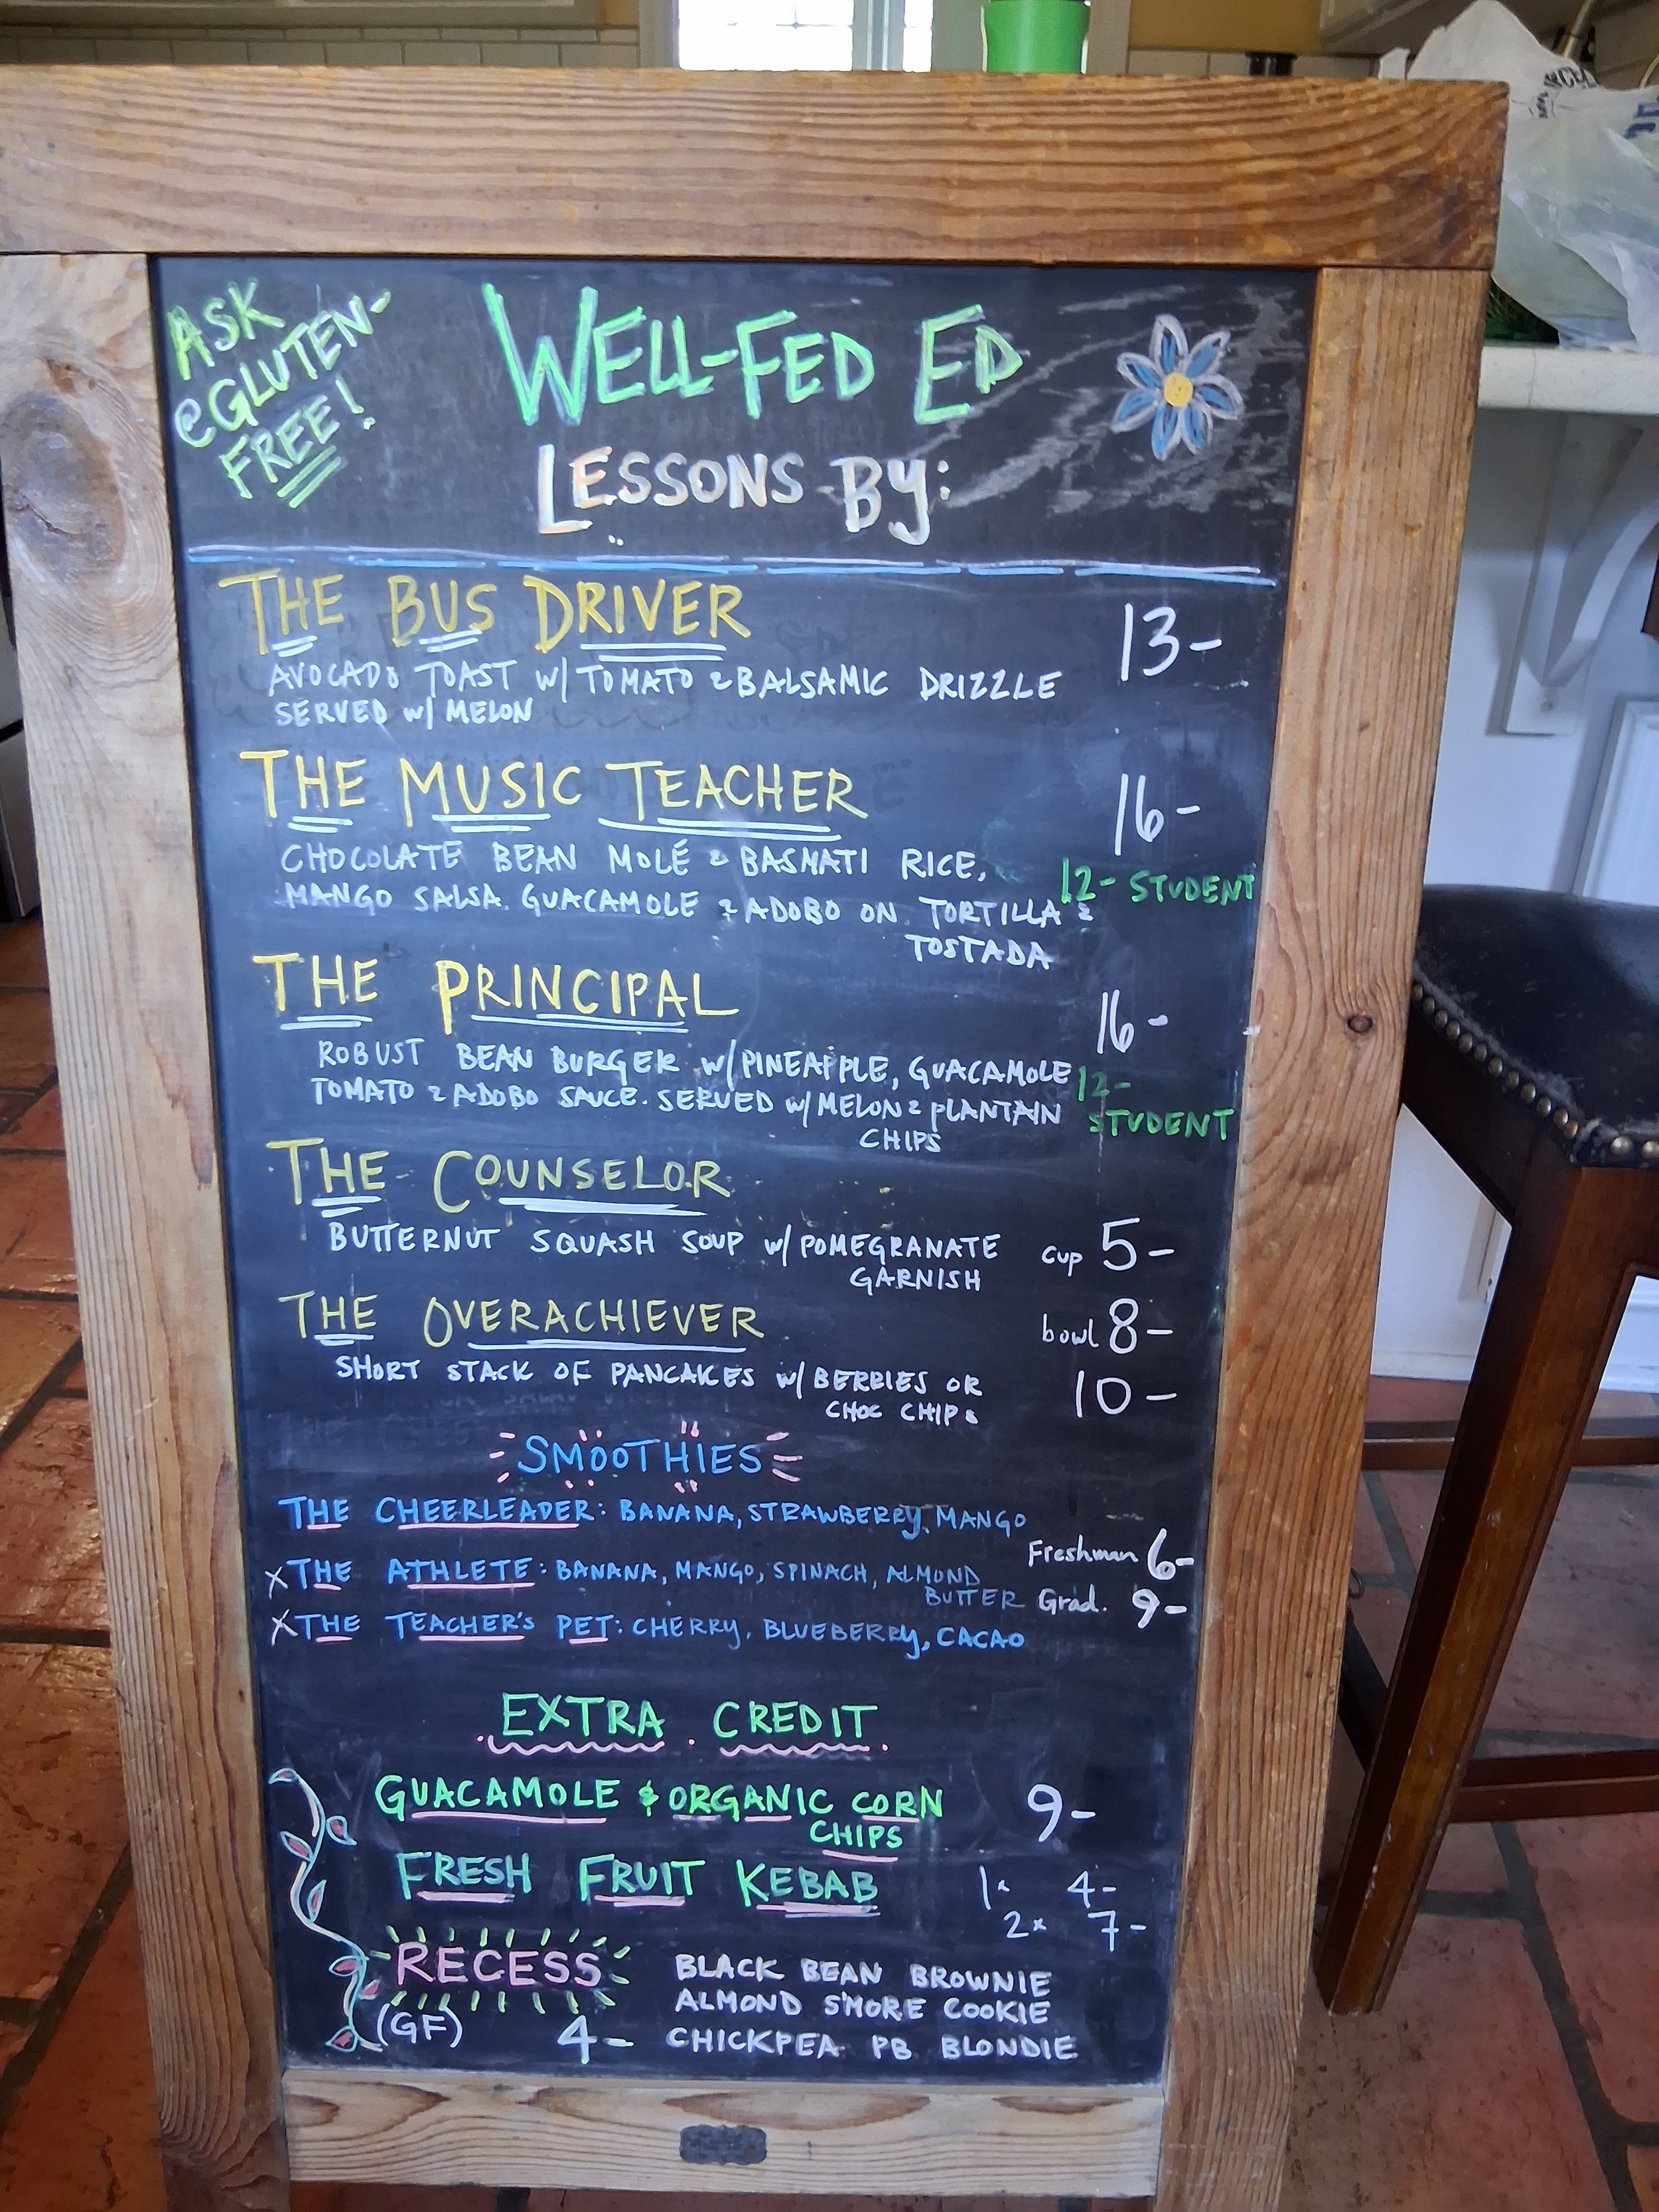 ASK
@GLUTEN-
FREE!
WELL-FED ED
LESSONS BY:
THE BUS DRIVER 13-
AVOCADO TOAST W/ TOMATO & BALSAMIC DRIZZLE
SERVED W/ MELON
THE MUSIC TEACHER 16-
CHOCOLATE BEAN MOLÉ & BASMATI RICE, 12- STUDENT
MANGO SALSA. GUACAMOLE & ADOBO ON TORTILLA &
TOSTADA
THE PRINCIPAL 16-
ROBUST BEAN BURGER W/ PINEAPPLE, GUACAMOLE 12-
TOMATO & ADOBO SAUCE. SERVED W/ MELON & PLANTAIN STUDENT
CHIPS
THE COUNSELOR
BUTTERNUT SQUASH SOUP W/ POMEGRANATE cup 5-
GARNISH
THE OVERACHIEVER bowl 8-
SHORT STACK OF PANCAKES W/ BERRIES OR 10-
CHOC CHIPS
SMOOTHIES
THE CHEERLEADER: BANANA, STRAWBERRY, MANGO
Freshman 6-
X THE ATHLETE: BANANA, MANGO, SPINACH, ALMOND
BUTTER Grad. 9-
X THE TEACHER'S PET: CHERRY, BLUEBERRY, CACAO
EXTRA CREDIT
GUACAMOLE & ORGANIC CORN 9-
CHIPS
FRESH FRUIT KEBAB 1x 4-
2x 7-
RECESS BLACK BEAN BROWNIE
ALMOND S'MORE COOKIE
(GF) 4- CHICKPEA PB BLONDIE